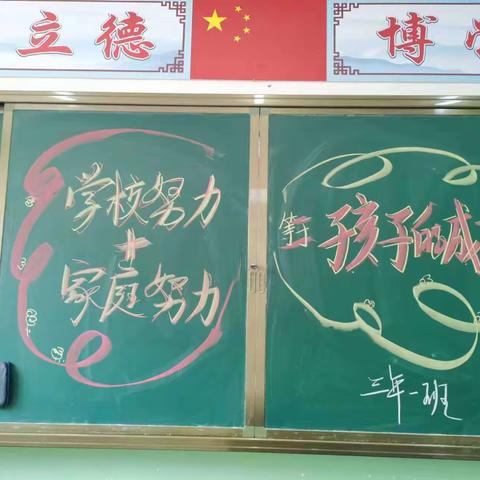 立德
博学
学校努力
+
家庭努力
等于
孩子的成
三年一班